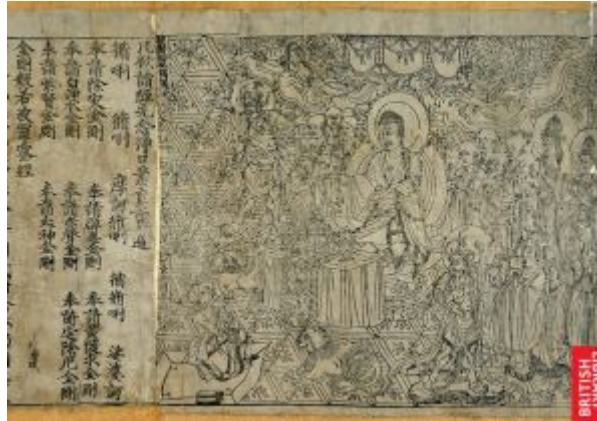 凡欲讀經先念淨口業真言一遍
脩唎 脩唎 摩訶脩唎 脩脩唎 娑婆訶
奉請除災金剛 奉請辟毒金剛 奉請黃隨求金剛
奉請白淨水金剛 奉請赤聲金剛 奉請定除厄金剛
奉請紫賢金剛 奉請大神金剛
金剛般若波羅蜜經
BRITISH